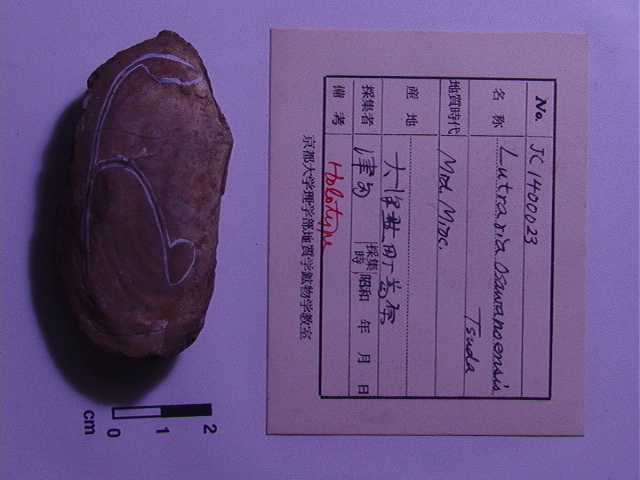 No. JC1400023
名称 Lutraria osawanoensis
Tsuda
地質時代 Mid. Mioc.
産地
採集者 津田 採集時 昭和 年 月 日
備考 Holotype
京都大学理学部地質学鉱物学教室
cm 0 1 2